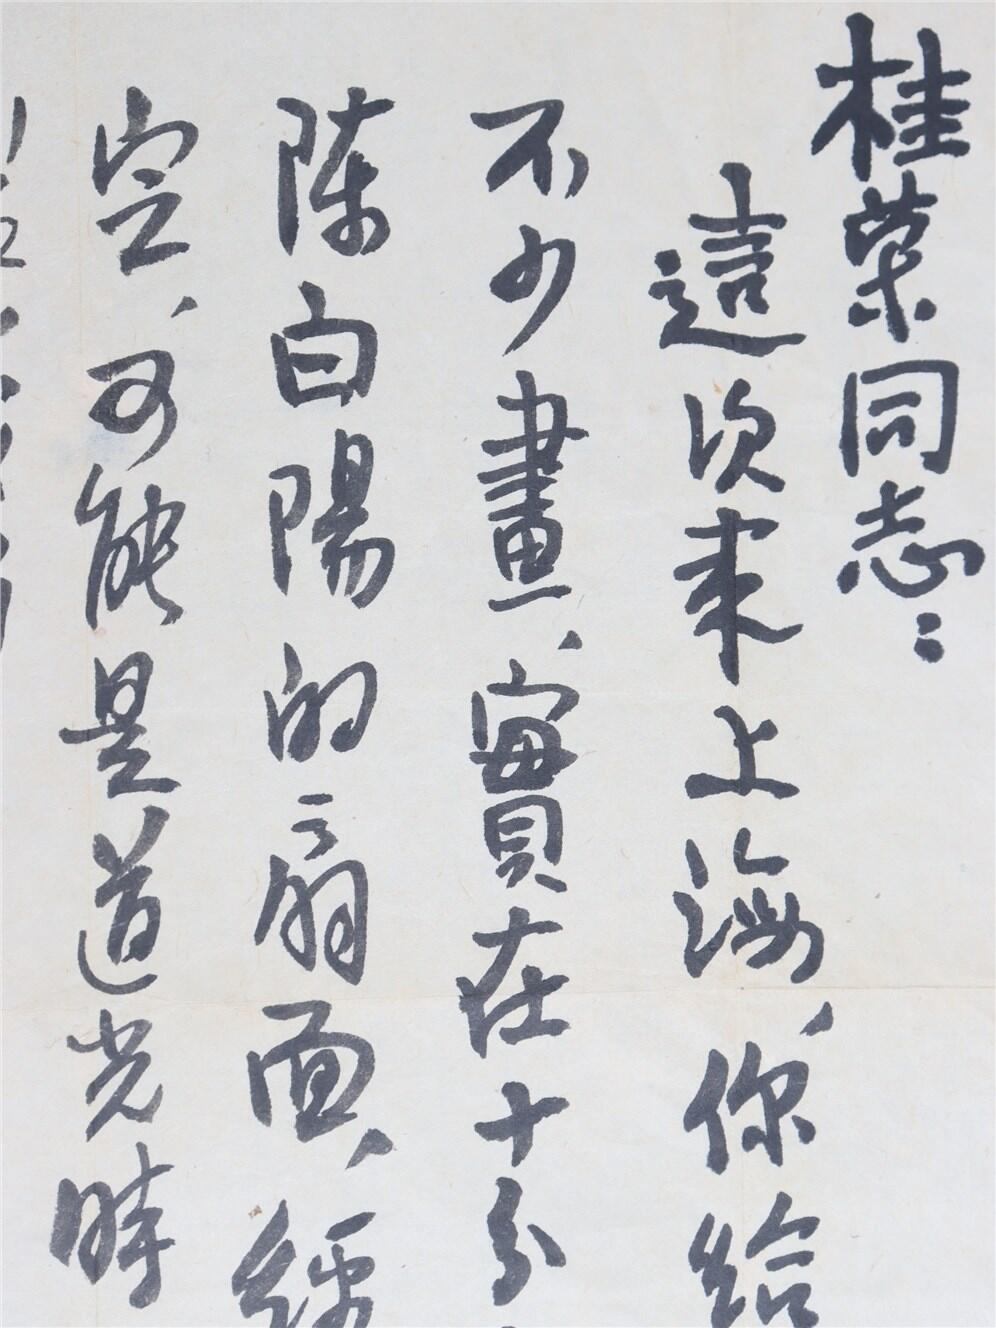 桂荣同志：
這次来上海，你给
不少畫，實在十分
陈白陽的扇面，經
定，可能是道光時